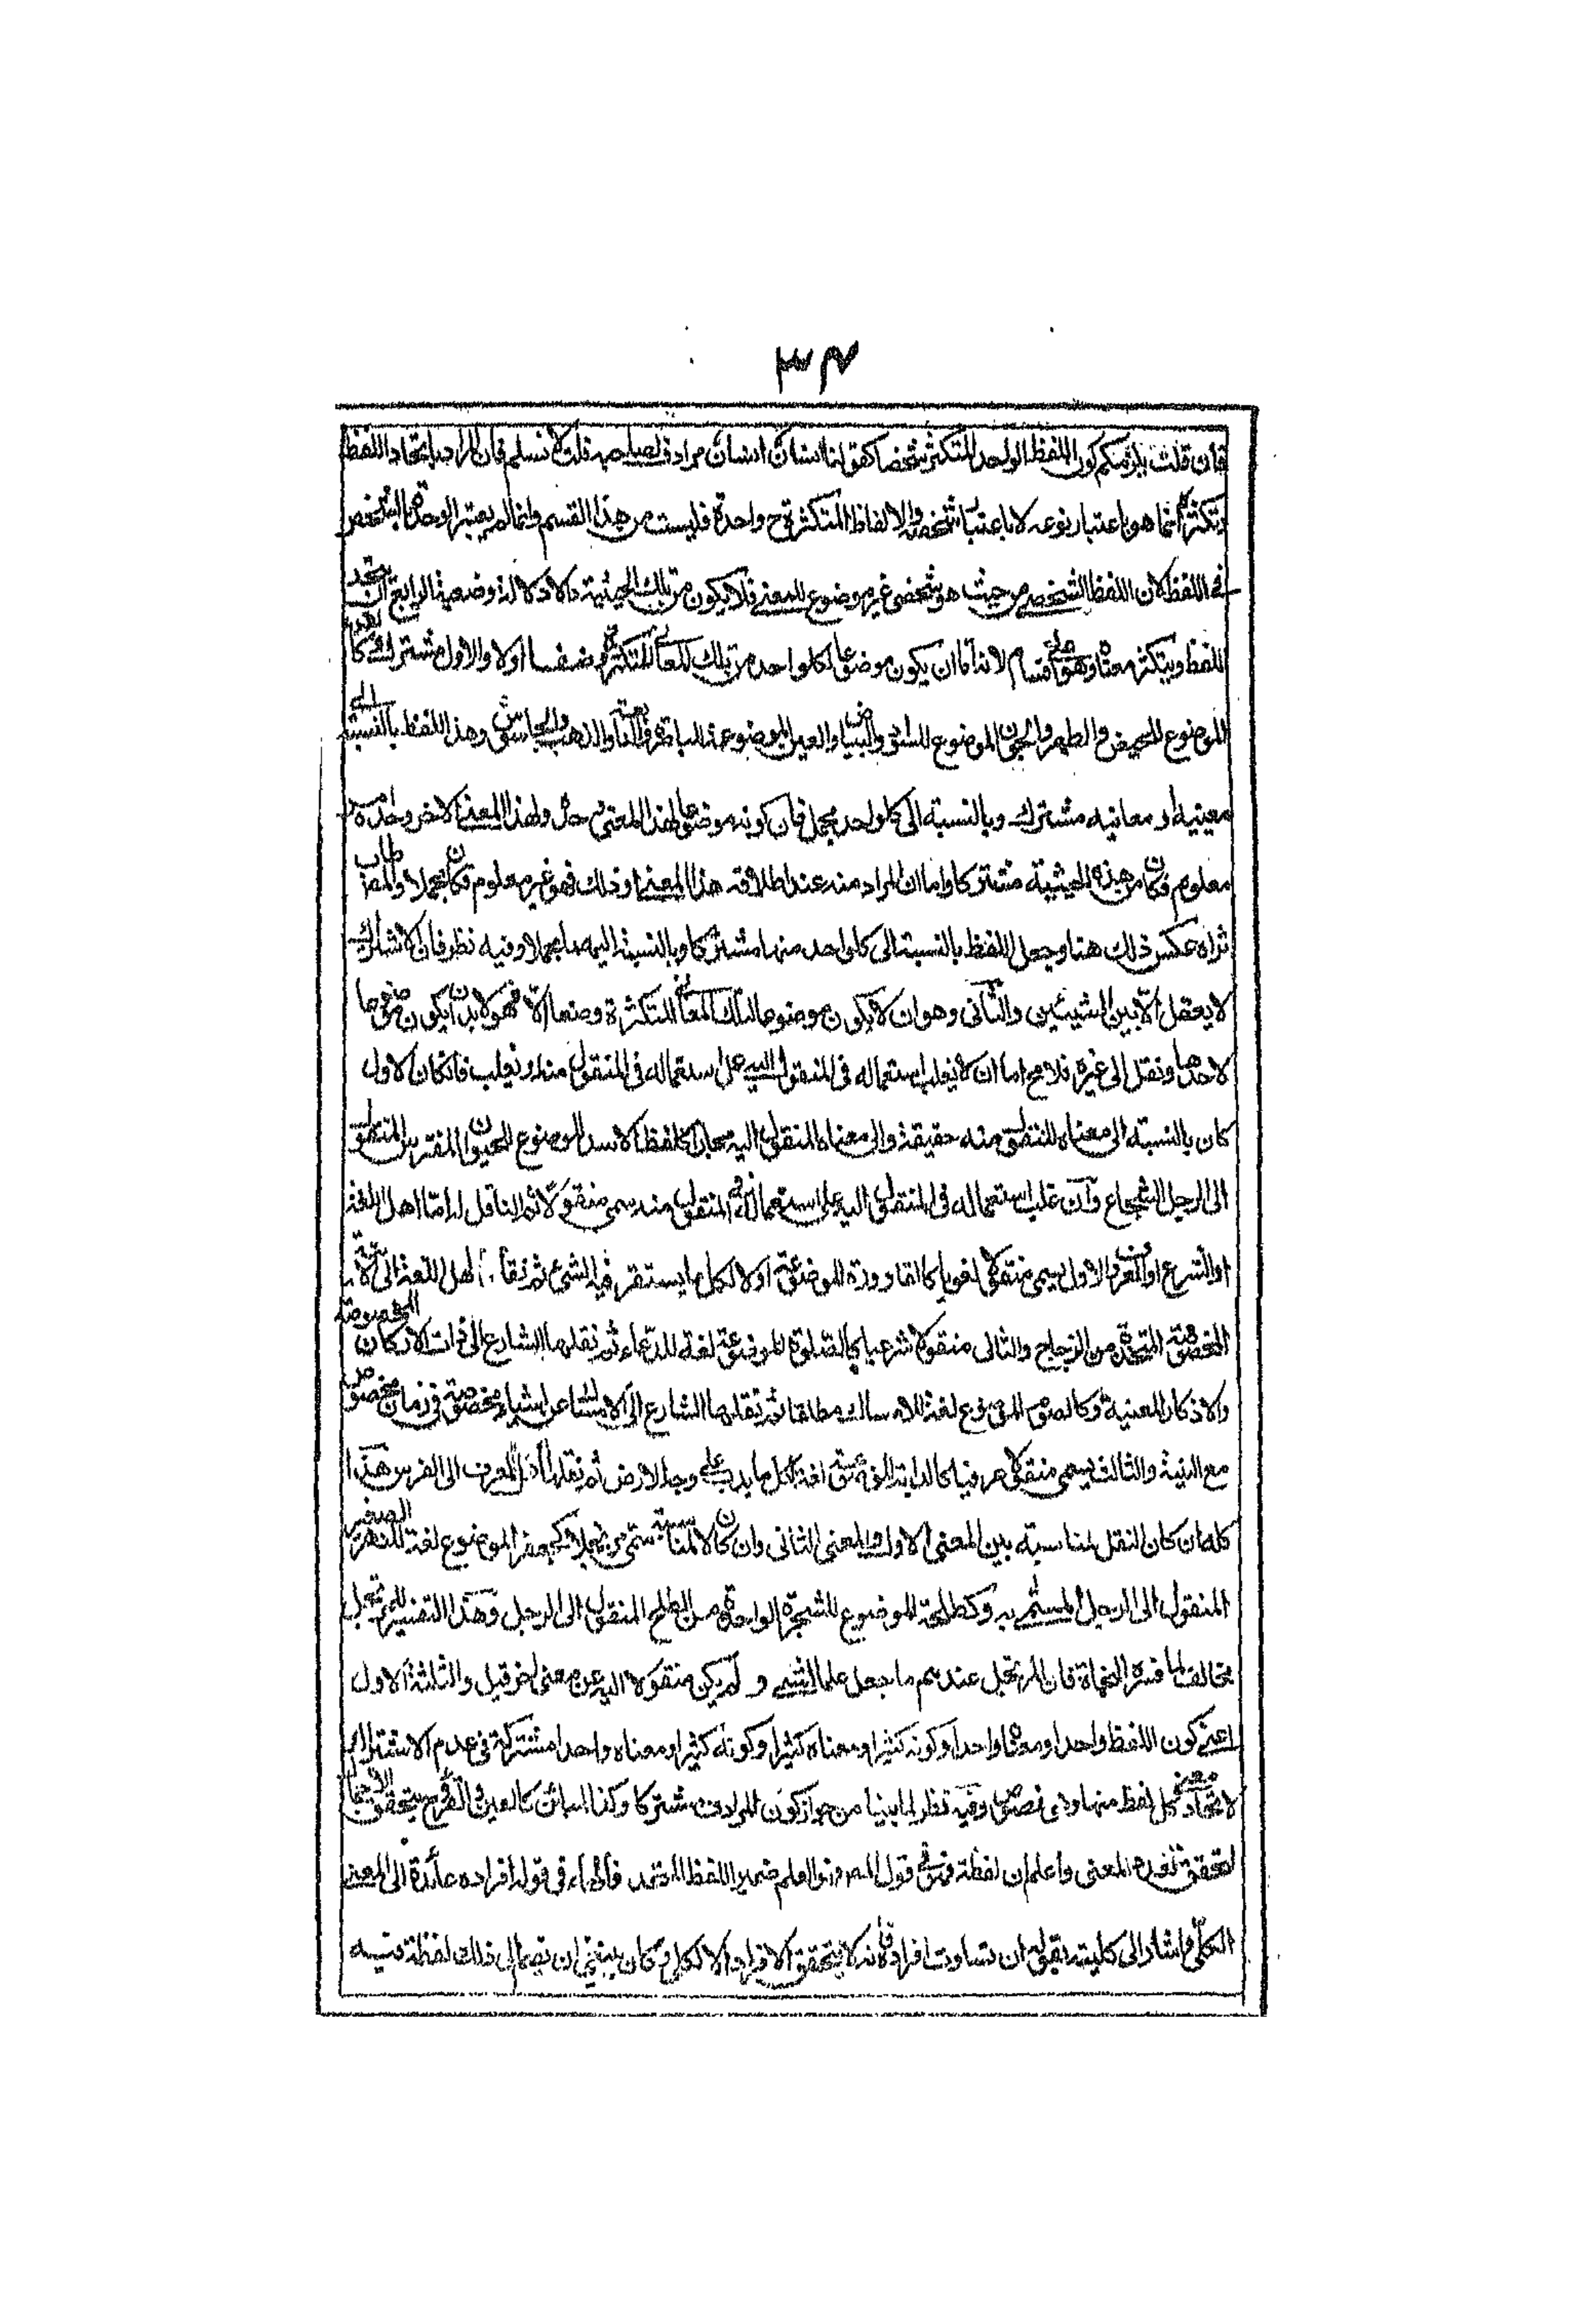 ٣٤
فان قلت يلزمكم كون اللفظ الواحد المتكثر شخصا كقولنا انسان انسان مرادف لصاحبه قلت لا نسلم فان المراد باتحاد اللفظ
وتكثره انما هو باعتبار نوعه لا باعتبار شخصه والالفاظ المتكثرة ح واحدة فليست من هذا القسم وانما لم يعتبر الوحدة بالشخص
في اللفظ لان اللفظ الشخصي من حيث هو شخصي غير موضوع للمعنى فلا يكون من تلك الحيثية دالا دلالة وضعية الرابع ان يتحد
اللفظ ويتكثر معناه وهو على اقسام لانه اما ان يكون موضوعا لكل واحد من تلك المعاني المتكثرة وضعا اولا والاول مشترك كالقرء
الموضوع للحيض والطهر والجون الموضوع للسواد والبياض والعين الموضوعة للباصرة والذهب والجاسوس وهذا اللفظ بالنسبة الى
معنييه او معانيه مشترك وبالنسبة الى كل واحد مجمل فان كونه موضوعا لهذا المعنى وحده ولهذا المعنى الاخر وحده امر
معلوم فكان من هذه الحيثية مشتركا واما ان المراد منه عند اطلاقه هذا المعنى او ذلك فهو غير معلوم فكان مجملا والمص طاب
ثراه عكس ذلك هنا وجعل اللفظ بالنسبة الى كل واحد منها مشتركا وبالنسبة اليهما مجملا وفيه نظر فان الاشتراك
لا يعقل الا بين الشيئين والثاني وهو ان لا يكون موضوعا لتلك المعاني المتكثرة وضعا اولا فهو لا بد ان يكون موضوعا
لاحدها ونقل الى غيره فلا يخ اما ان لا يغلب استعماله في المنقول اليه على استعماله في المنقول منه او يغلب فان كان الاول
كان بالنسبة الى معناه المنقول منه حقيقة والى معناه المنقول اليه مجازا كلفظ الاسد الموضوع للحيوان المفترس المنقول
الى الرجل الشجاع وان غلب استعماله في المنقول اليه على استعماله في المنقول منه سمي منقولا ثم الناقل له اما اهل اللغة
او الشرع او العرف والاول يسمى منقولا لغويا كالقارورة الموضوعة اولا لكل ما يستقر فيه الشيء ثم نقلها اهل اللغة الى الآنية
المخصوصة المتخذة من الزجاج والثاني منقولا شرعيا كالصلوة الموضوعة لغة للدعاء ثم نقلها الشارع الى ذات الاركان المخصوصة
والاذكار المعينة وكالصوم الموضوع لغة للامساك مطلقا ثم نقلها الشارع الى الامساك عن اشياء مخصوصة في زمان مخصوص
مع النية والثالث يسمى منقولا عرفيا كالدابة الموضوعة لغة لكل ما يدب على وجه الارض ثم نقلها اهل العرف الى الفرس هذا
كله ان كان النقل لمناسبة بين المعنى الاول والمعنى الثاني وان كان لا لمناسبة سمي مرتجلا كجعفر الموضوع لغة للنهر الصغير
المنقول الى الرجل المسمى به وكطلحة الموضوع للشجرة الواحدة من الطلح المنقول الى الرجل وهذا التفسير للمرتجل
مخالف لما فسره النحاة فان المرتجل عندهم ما جعل علما لشيء و لم يكن منقولا اليه عن معنى اخر قيل والثلثة الاول
اعني كون اللفظ واحدا ومعناه واحدا وكونه كثيرا ومعناه كثيرا وكونه كثيرا ومعناه واحدا مشتركة في عدم الاشتراك
لاتحاد معنى كل لفظ منها وهي نصوص وفيه نظر لما بينا من جواز كون المرادف مشتركا وكذا المباين كالعين والقرء
لتحقق تعدد المعنى واعلم ان لفظة هو في قول المص ضمير اللفظ المتحد فالهاء في قوله افراده عائدة الى المعنى
الكلي واشار الى كليته بقوله ان تساوت افراده فانه لا يتحقق الافراد الا للكلي وكان ينبغي ان يضم الى ذلك لفظة فيه